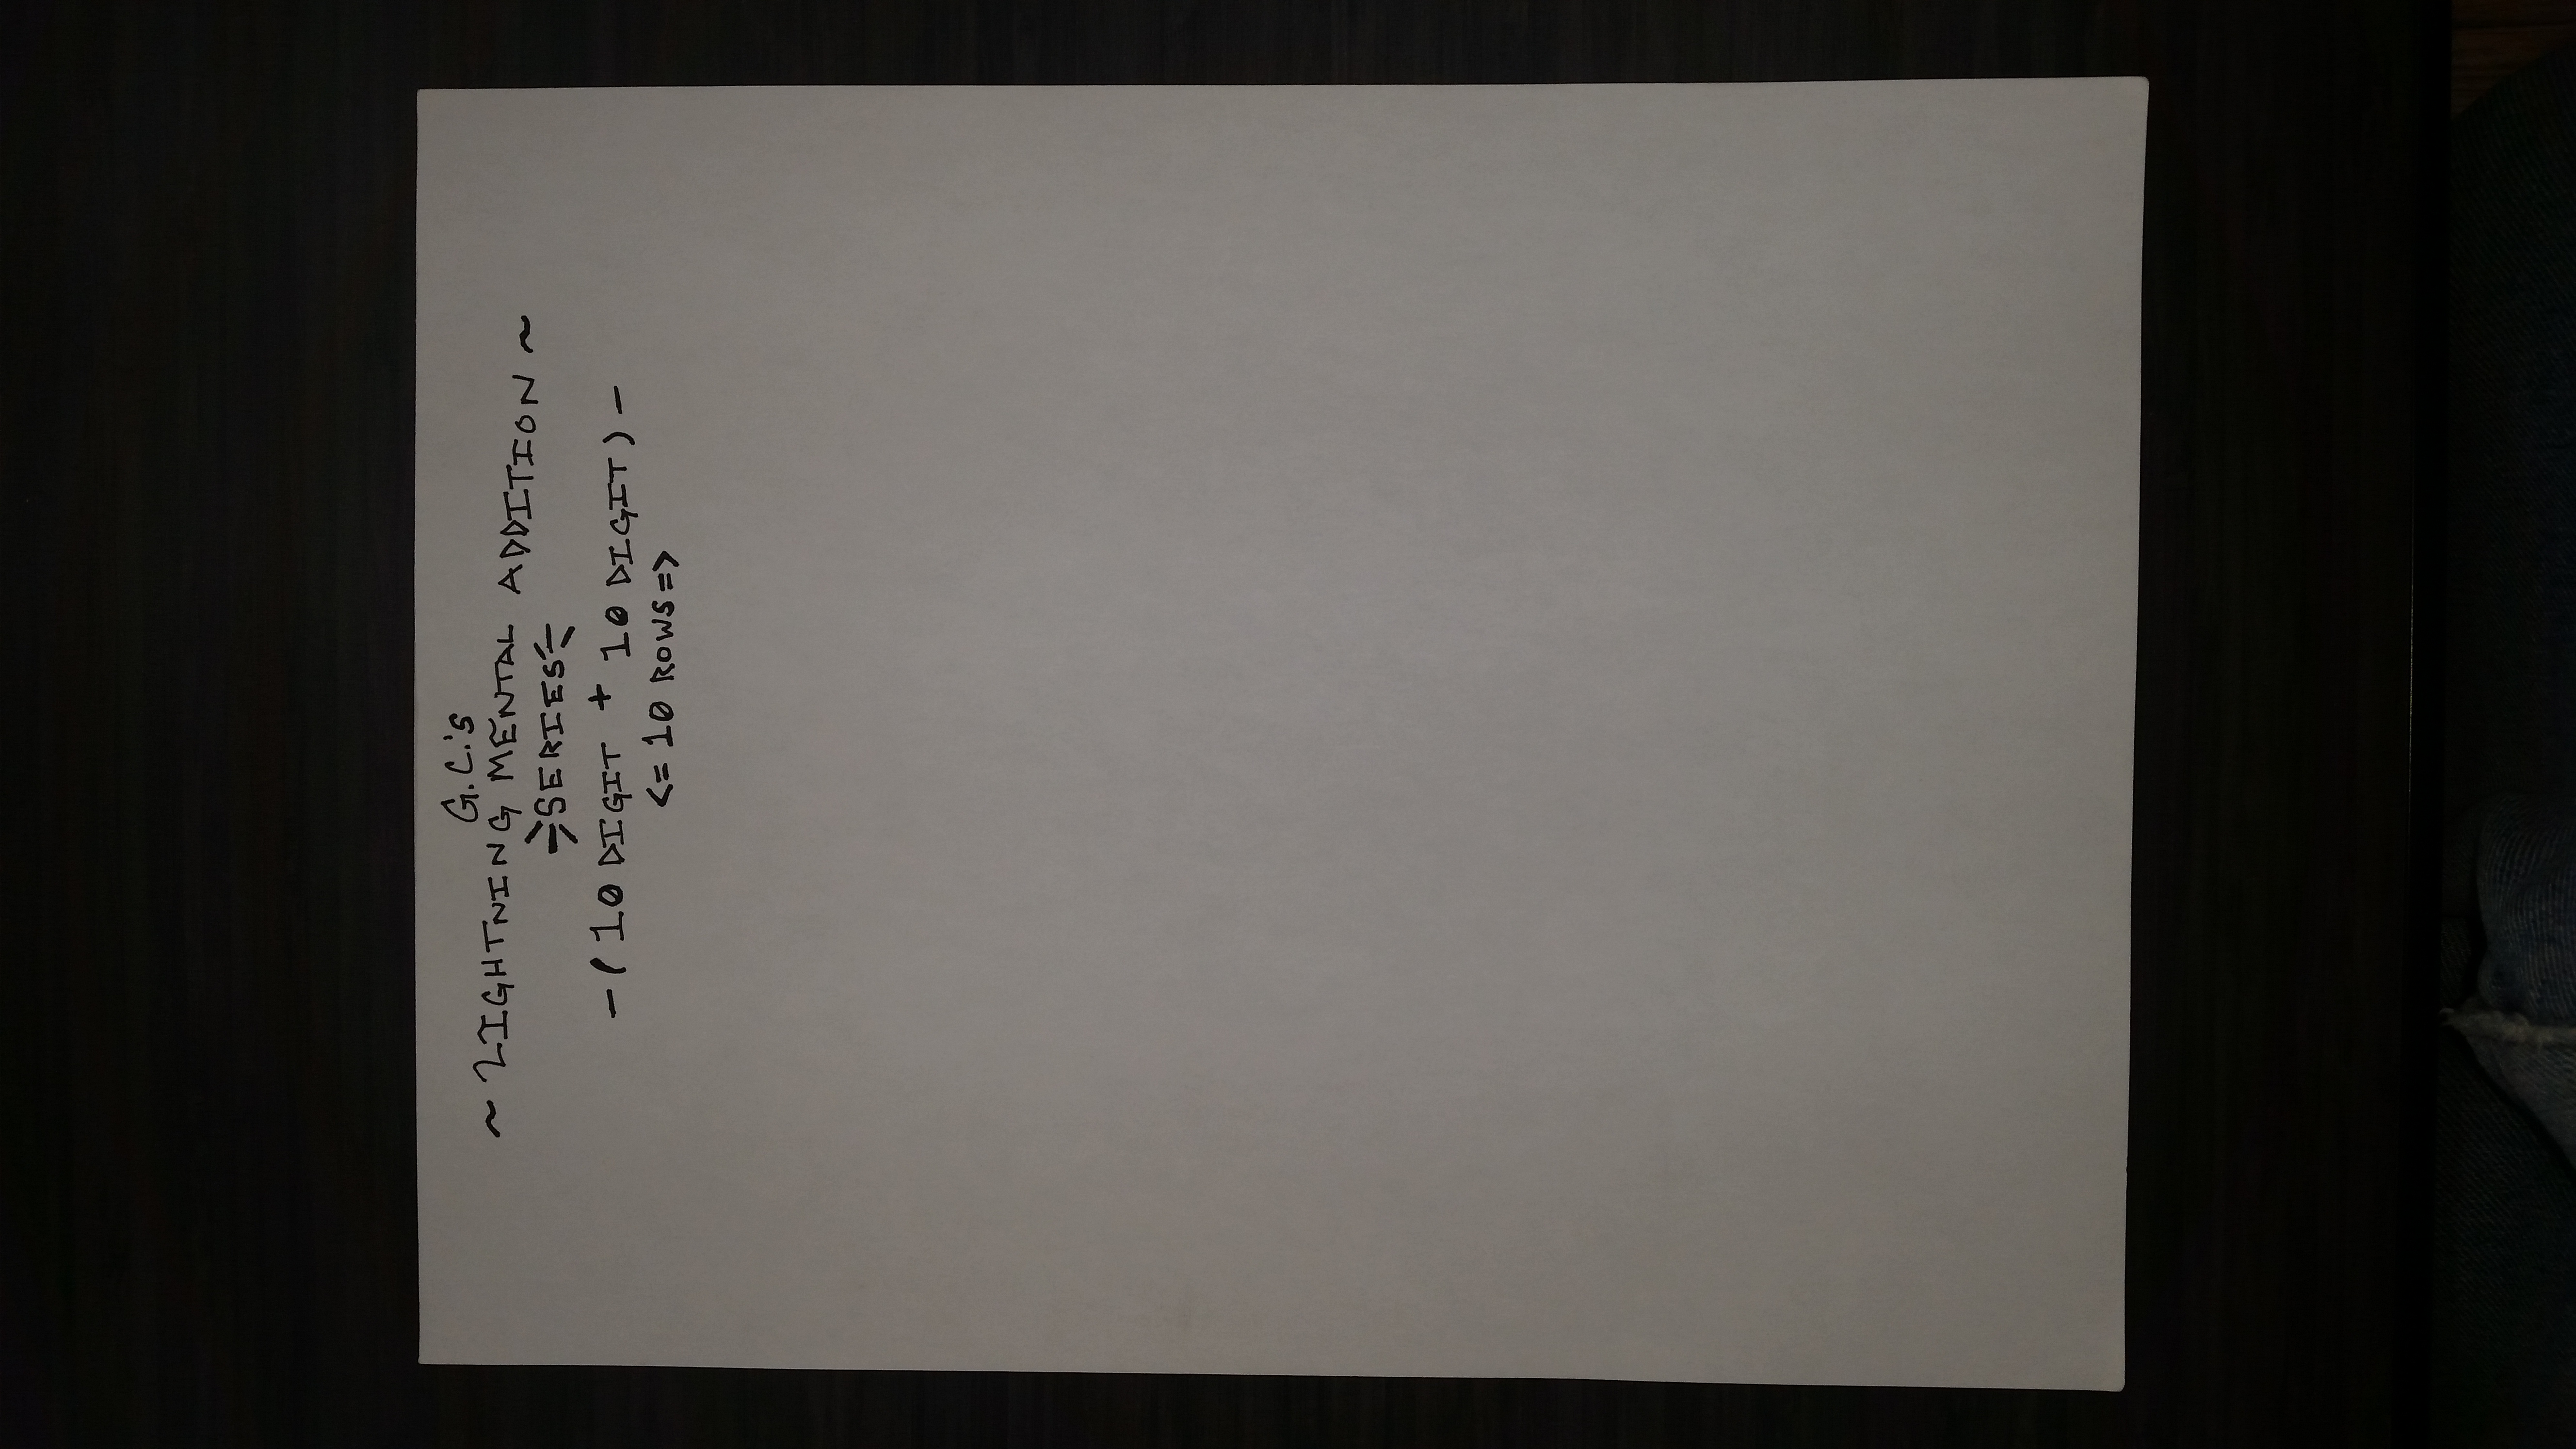 G.C.'s
~ LIGHTNING MENTAL ADDITION ~
SERIES
-( 10 DIGIT + 10 DIGIT ) -
<= 10 ROWS =>